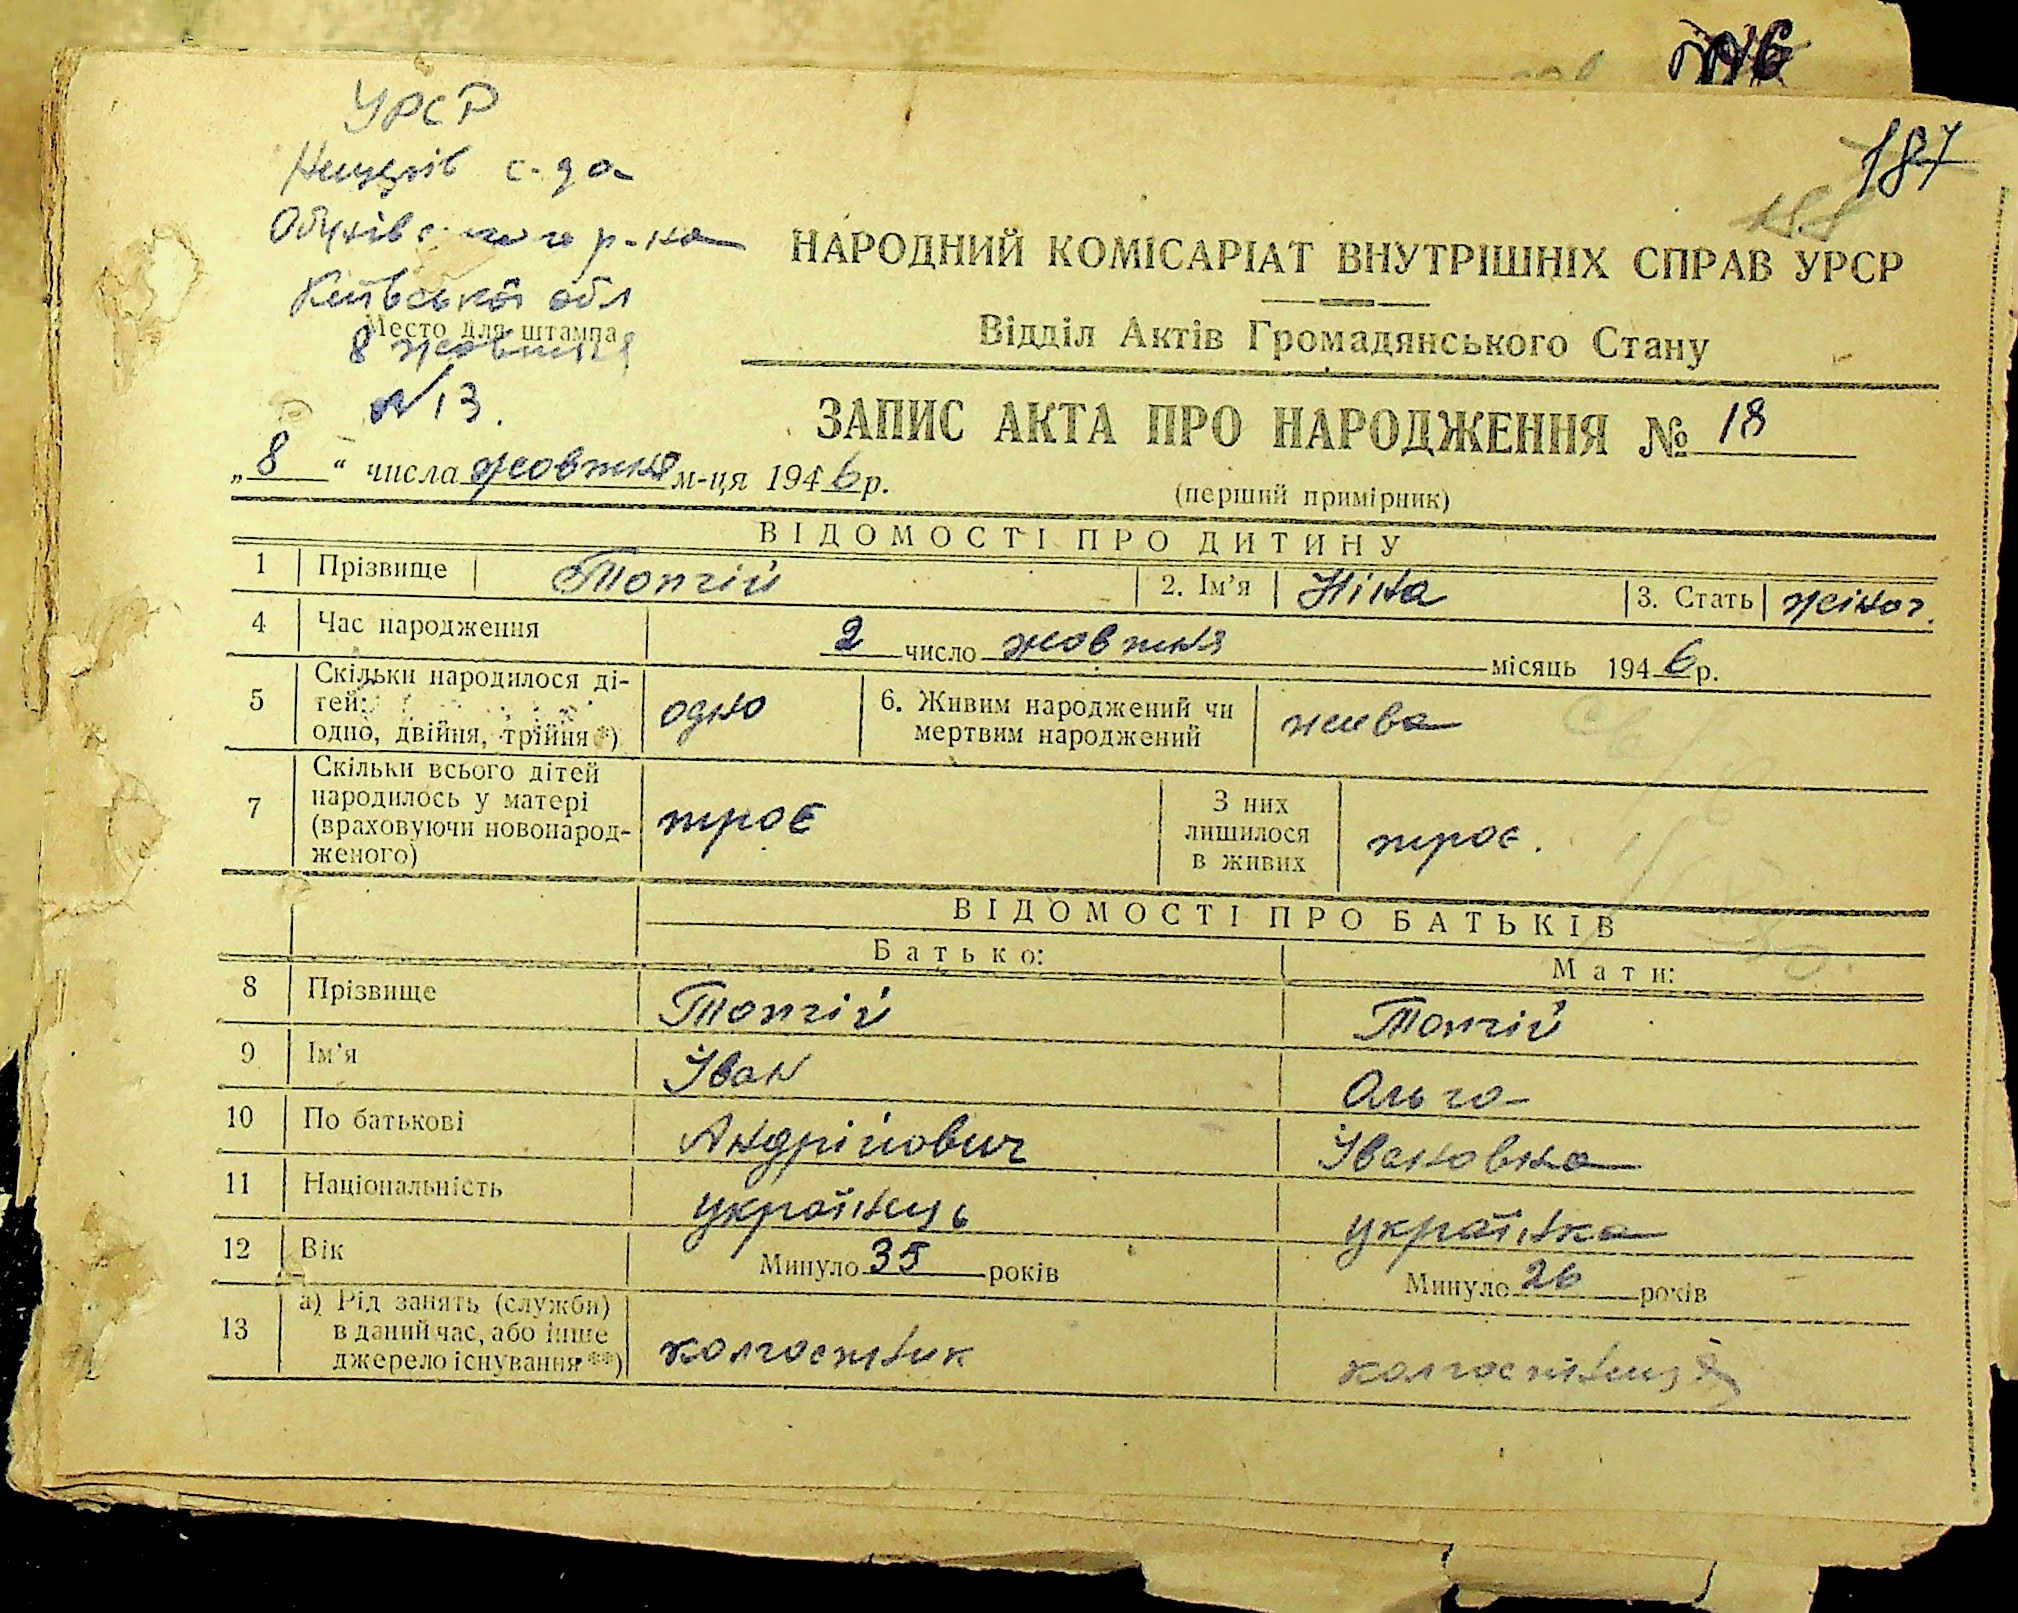 187
УРСР
с-да
Обухівського р-на
Київської обл
Место для штампа
8 жовтня
№ 13.
НАРОДНИЙ КОМІСАРІАТ ВНУТРІШНІХ СПРАВ УРСР
Відділ Актів Громадянського Стану
ЗАПИС АКТА ПРО НАРОДЖЕННЯ № 18
„8“ числа жовтня м-ця 1946 р.
(перший примірник)
ВІДОМОСТІ ПРО ДИТИНУ
1 Прізвище Топчій 2. Ім'я Ніна 3. Стать жіноч.
4 Час народження 2 число жовтня місяць 1946 р.
5 Скільки народилося ді-
тей:
одно, двійня, трійня*) одно 6. Живим народжений чи
мертвим народжений жива
7 Скільки всього дітей
народилось у матері
(враховуючи новонарод-
женого) троє З них
лишилося
в живих троє.
ВІДОМОСТІ ПРО БАТЬКІВ
Батько: Мати:
8 Прізвище Топчій Топчій
9 Ім'я Іван Ольга
10 По батькові Андрійович Івановна
11 Національність українець українка
12 Вік Минуло 35 років Минуло 26 років
13 а) Рід занять (служби)
в даний час, або інше
джерело існування**) колгоспник колгоспниця